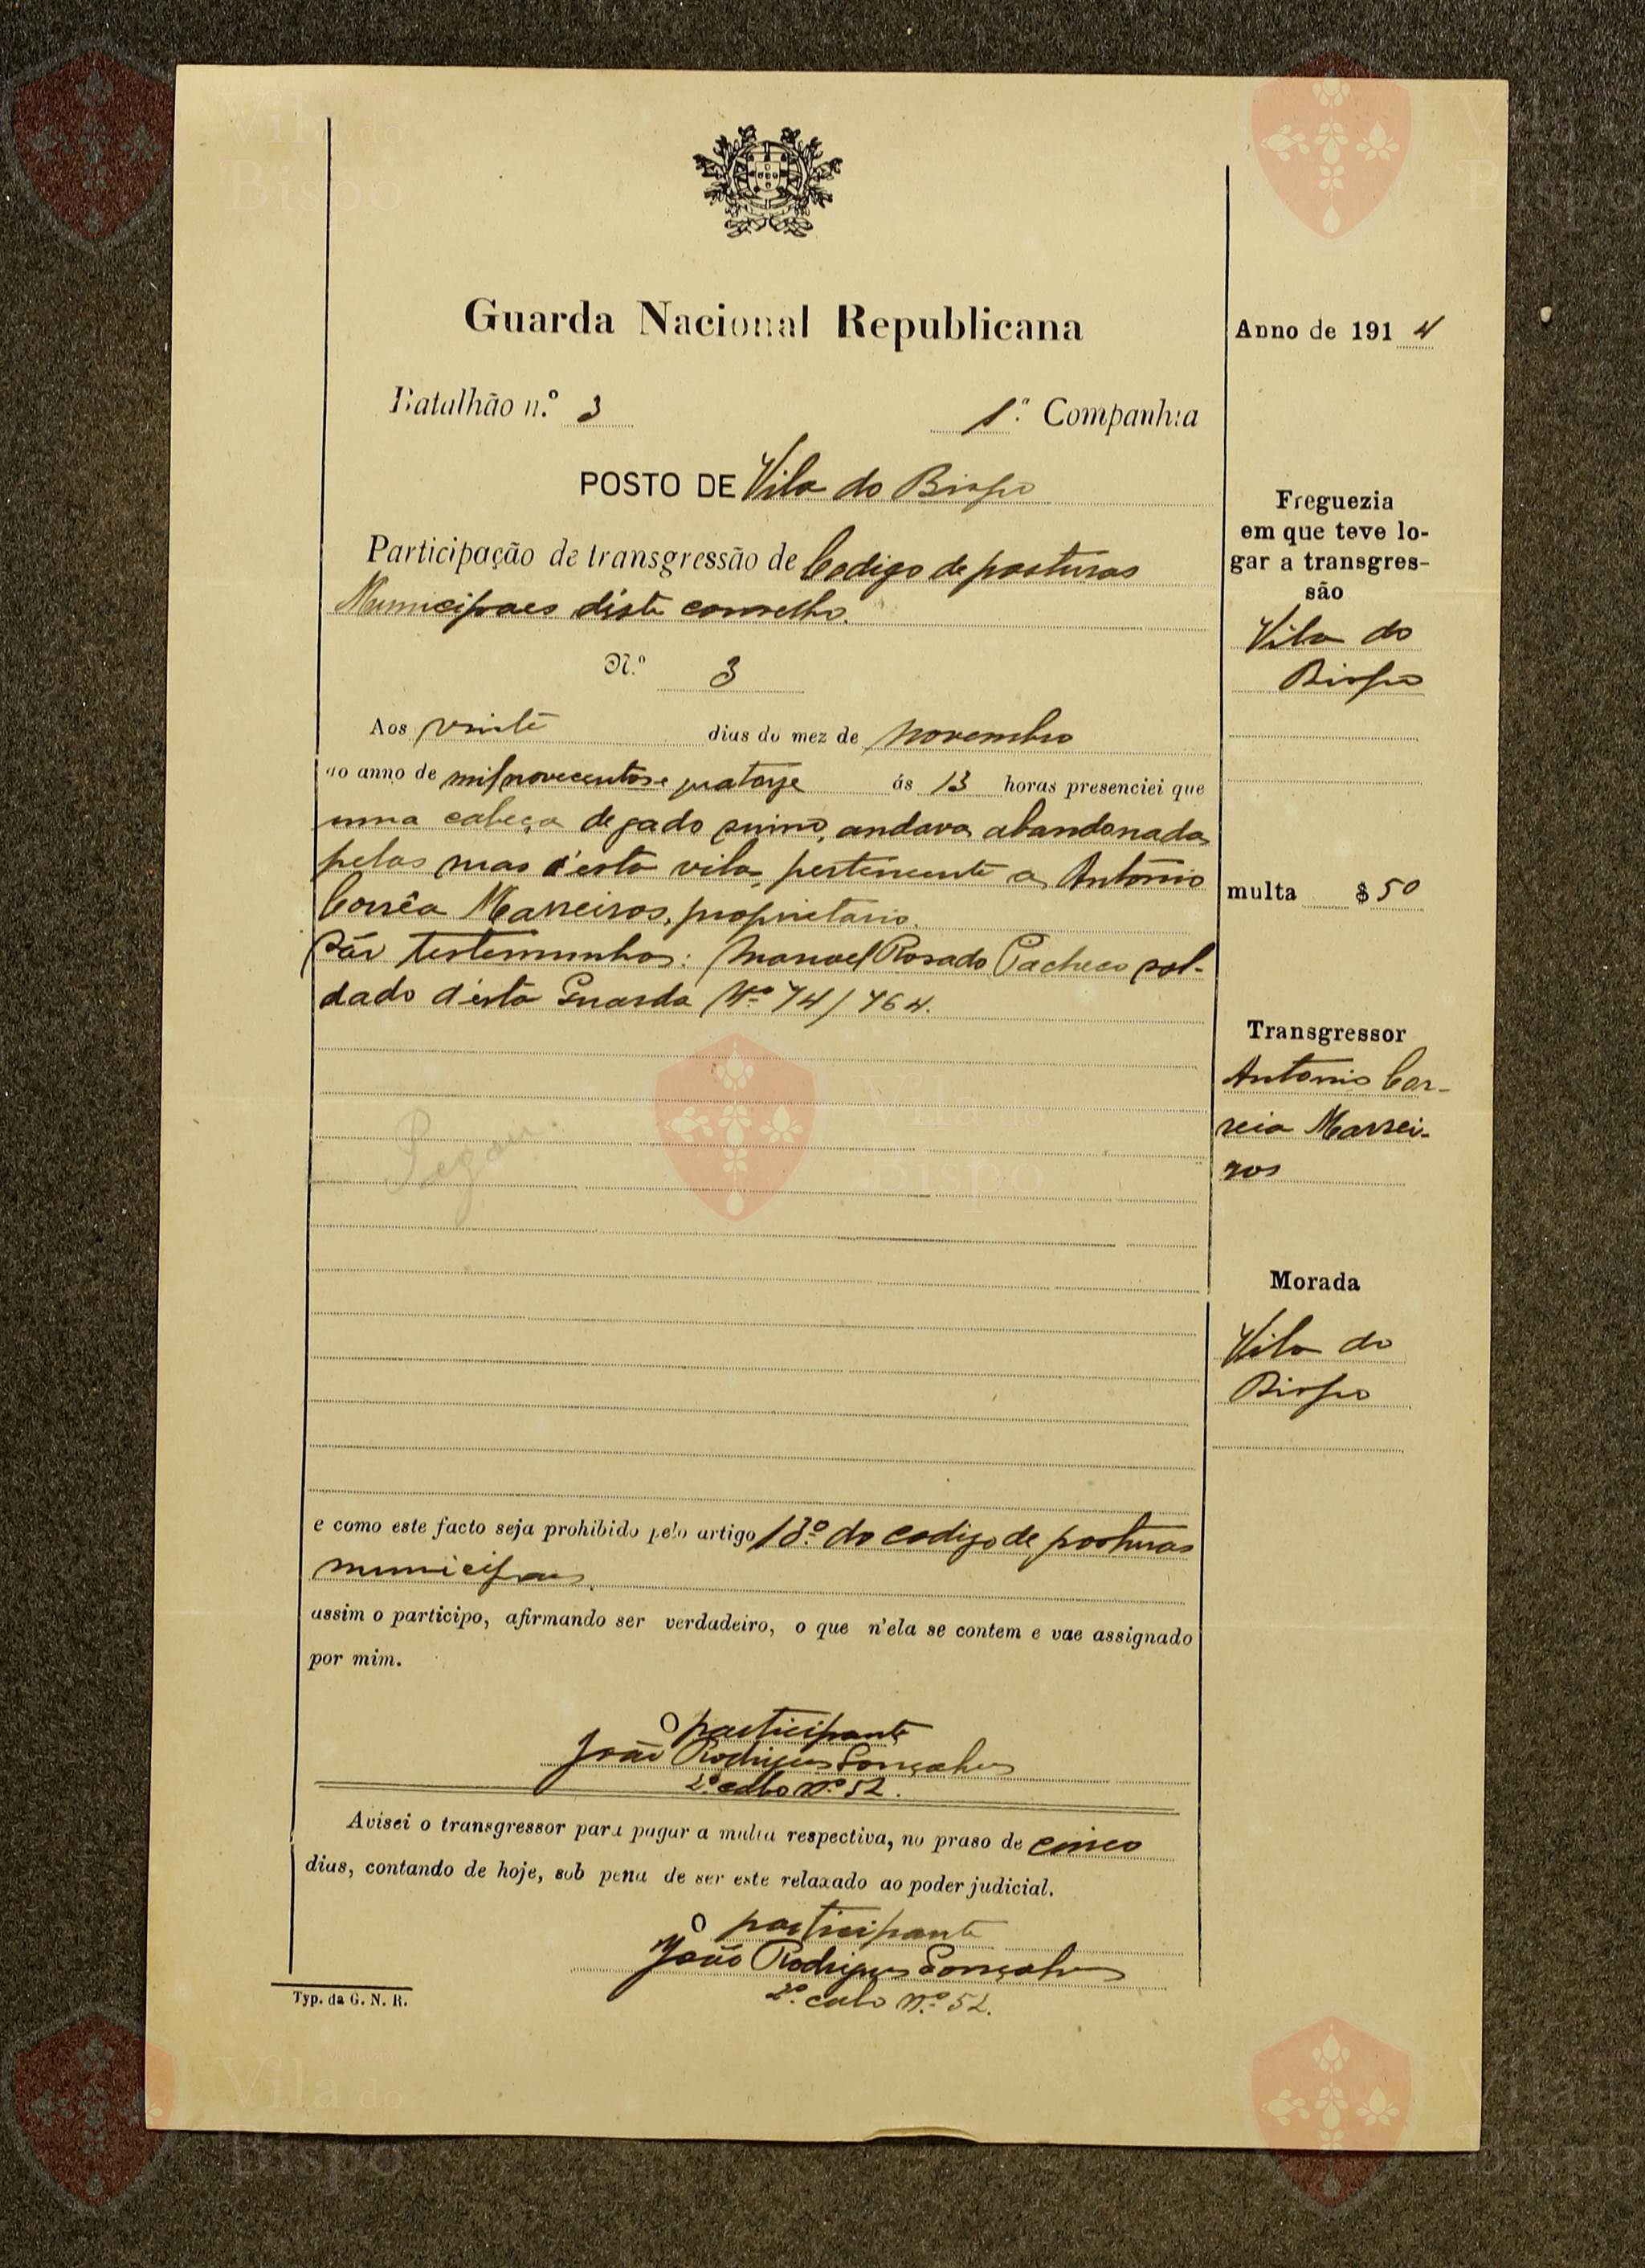 Guarda Nacional Republicana
Batalhão n.º 3
1.ª Companhia
POSTO DE Vila do Bispo
Participação de transgressão de Codigo de posturas
Municipaes díste conselho.
N.º 3
Aos vinte dias do mez de novembro
do anno de mil novecentos e quatorze ás 13 horas presenciei que
uma cabeça de gado suino, andava abandonada
pelas ruas d'esta vila, pertencente a António
Corrêa Marreiros, proprietario.
São testemunhas: Manoel Rosado Pacheco sol-
dado d'esta Guarda Nº 74/764.
Pegou.
e como este facto seja prohibido pelo artigo 13º do codigo de posturas
municipaes.
assim o participo, afirmando ser verdadeiro, o que n'ela se contem e vae assignado
por mim.
O participante
João Rodrigues Gonçalves
2º cabo nº 52.
Avisei o transgressor para pagar a multa respectiva, no praso de cinco
dias, contando de hoje, sob pena de ser este relaxado ao poder judicial.
O participante
João Rodrigues Gonçalves
2º. cabo nº 52.
Typ. da G. N. R.
Anno de 1914
Freguezia
em que teve lo-
gar a transgres-
são
Vila do
Bispo
multa $50
Transgressor
Antonio Cor-
reia Marrei-
ros
Morada
Vila do
Bispo
Vila do
Bispo